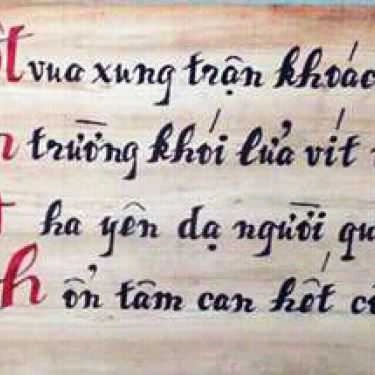 vua xung trận khoác
trường khói lửa vít
ha yên dạ người qu
h ổn tâm can hốt c